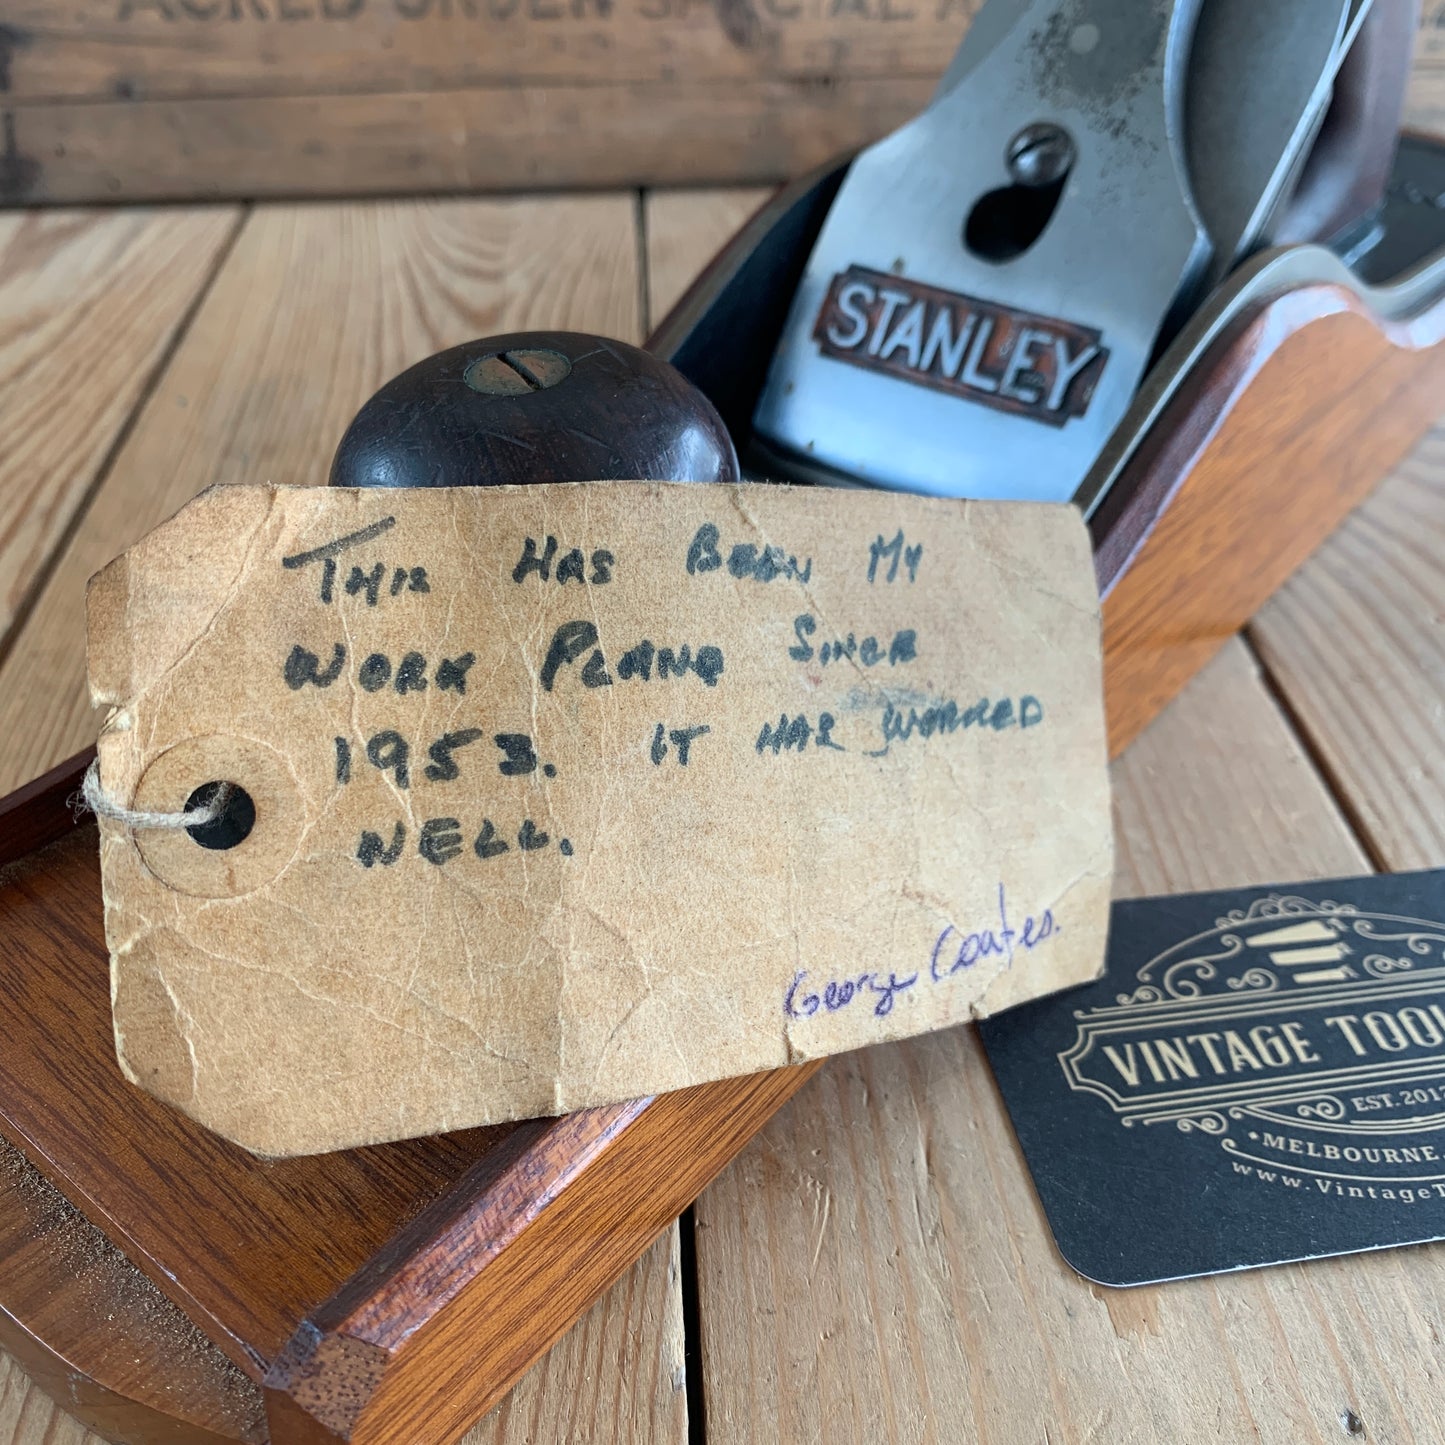 STANLEY
THIS HAS BEEN MY
WORK PLANE SINCE
1953. IT HAS WORKED
WELL.
George Coates.
VINTAGE TOOL
EST.2012
•MELBOURNE
www.VintageT